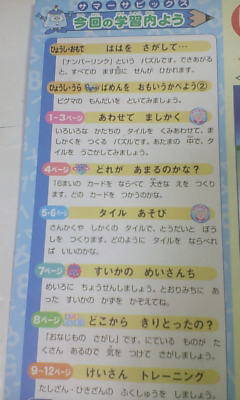 サマーサピックス
今回の学習内よう
ひょうし・おもて ははを さがして…
「ナンバーリンク」という パズルです。できあがる
と、すべての ます目に せんが ひかれます。
ひょうし・うら ばめんを おもいうかべよう②
ピグマの もんだいを といてみましょう。
1〜3ページ あわせて ましかく
いろいろな かたちの タイルを くみあわせて、ま
しかくを つくる パズルです。あたまの 中で、タ
イルを うごかしてみましょう。
4ページ どれが あまるのかな?
16まいの カードを ならべて 大きな えを つくり
ます。どの カードを つかうのかな。
5・6ページ タイル あそび
さんかくや しかくの タイルで、とうだいと ぼう
しを つくります。どのように タイルを ならべれ
ば いいのかな。
7ページ すいかの めいさんち
めいろに ちょうせんしましょう。とおりみちに あ
った すいかの かずを かぞえてね。
8ページ どこから きりとったの?
「おなじもの さがし」です。にている ものが た
くさん あるので 気を つけて さがしましょう。
9〜12ページ けいさん トレーニング
たしざん・ひきざんの ふくしゅうを しましょう。